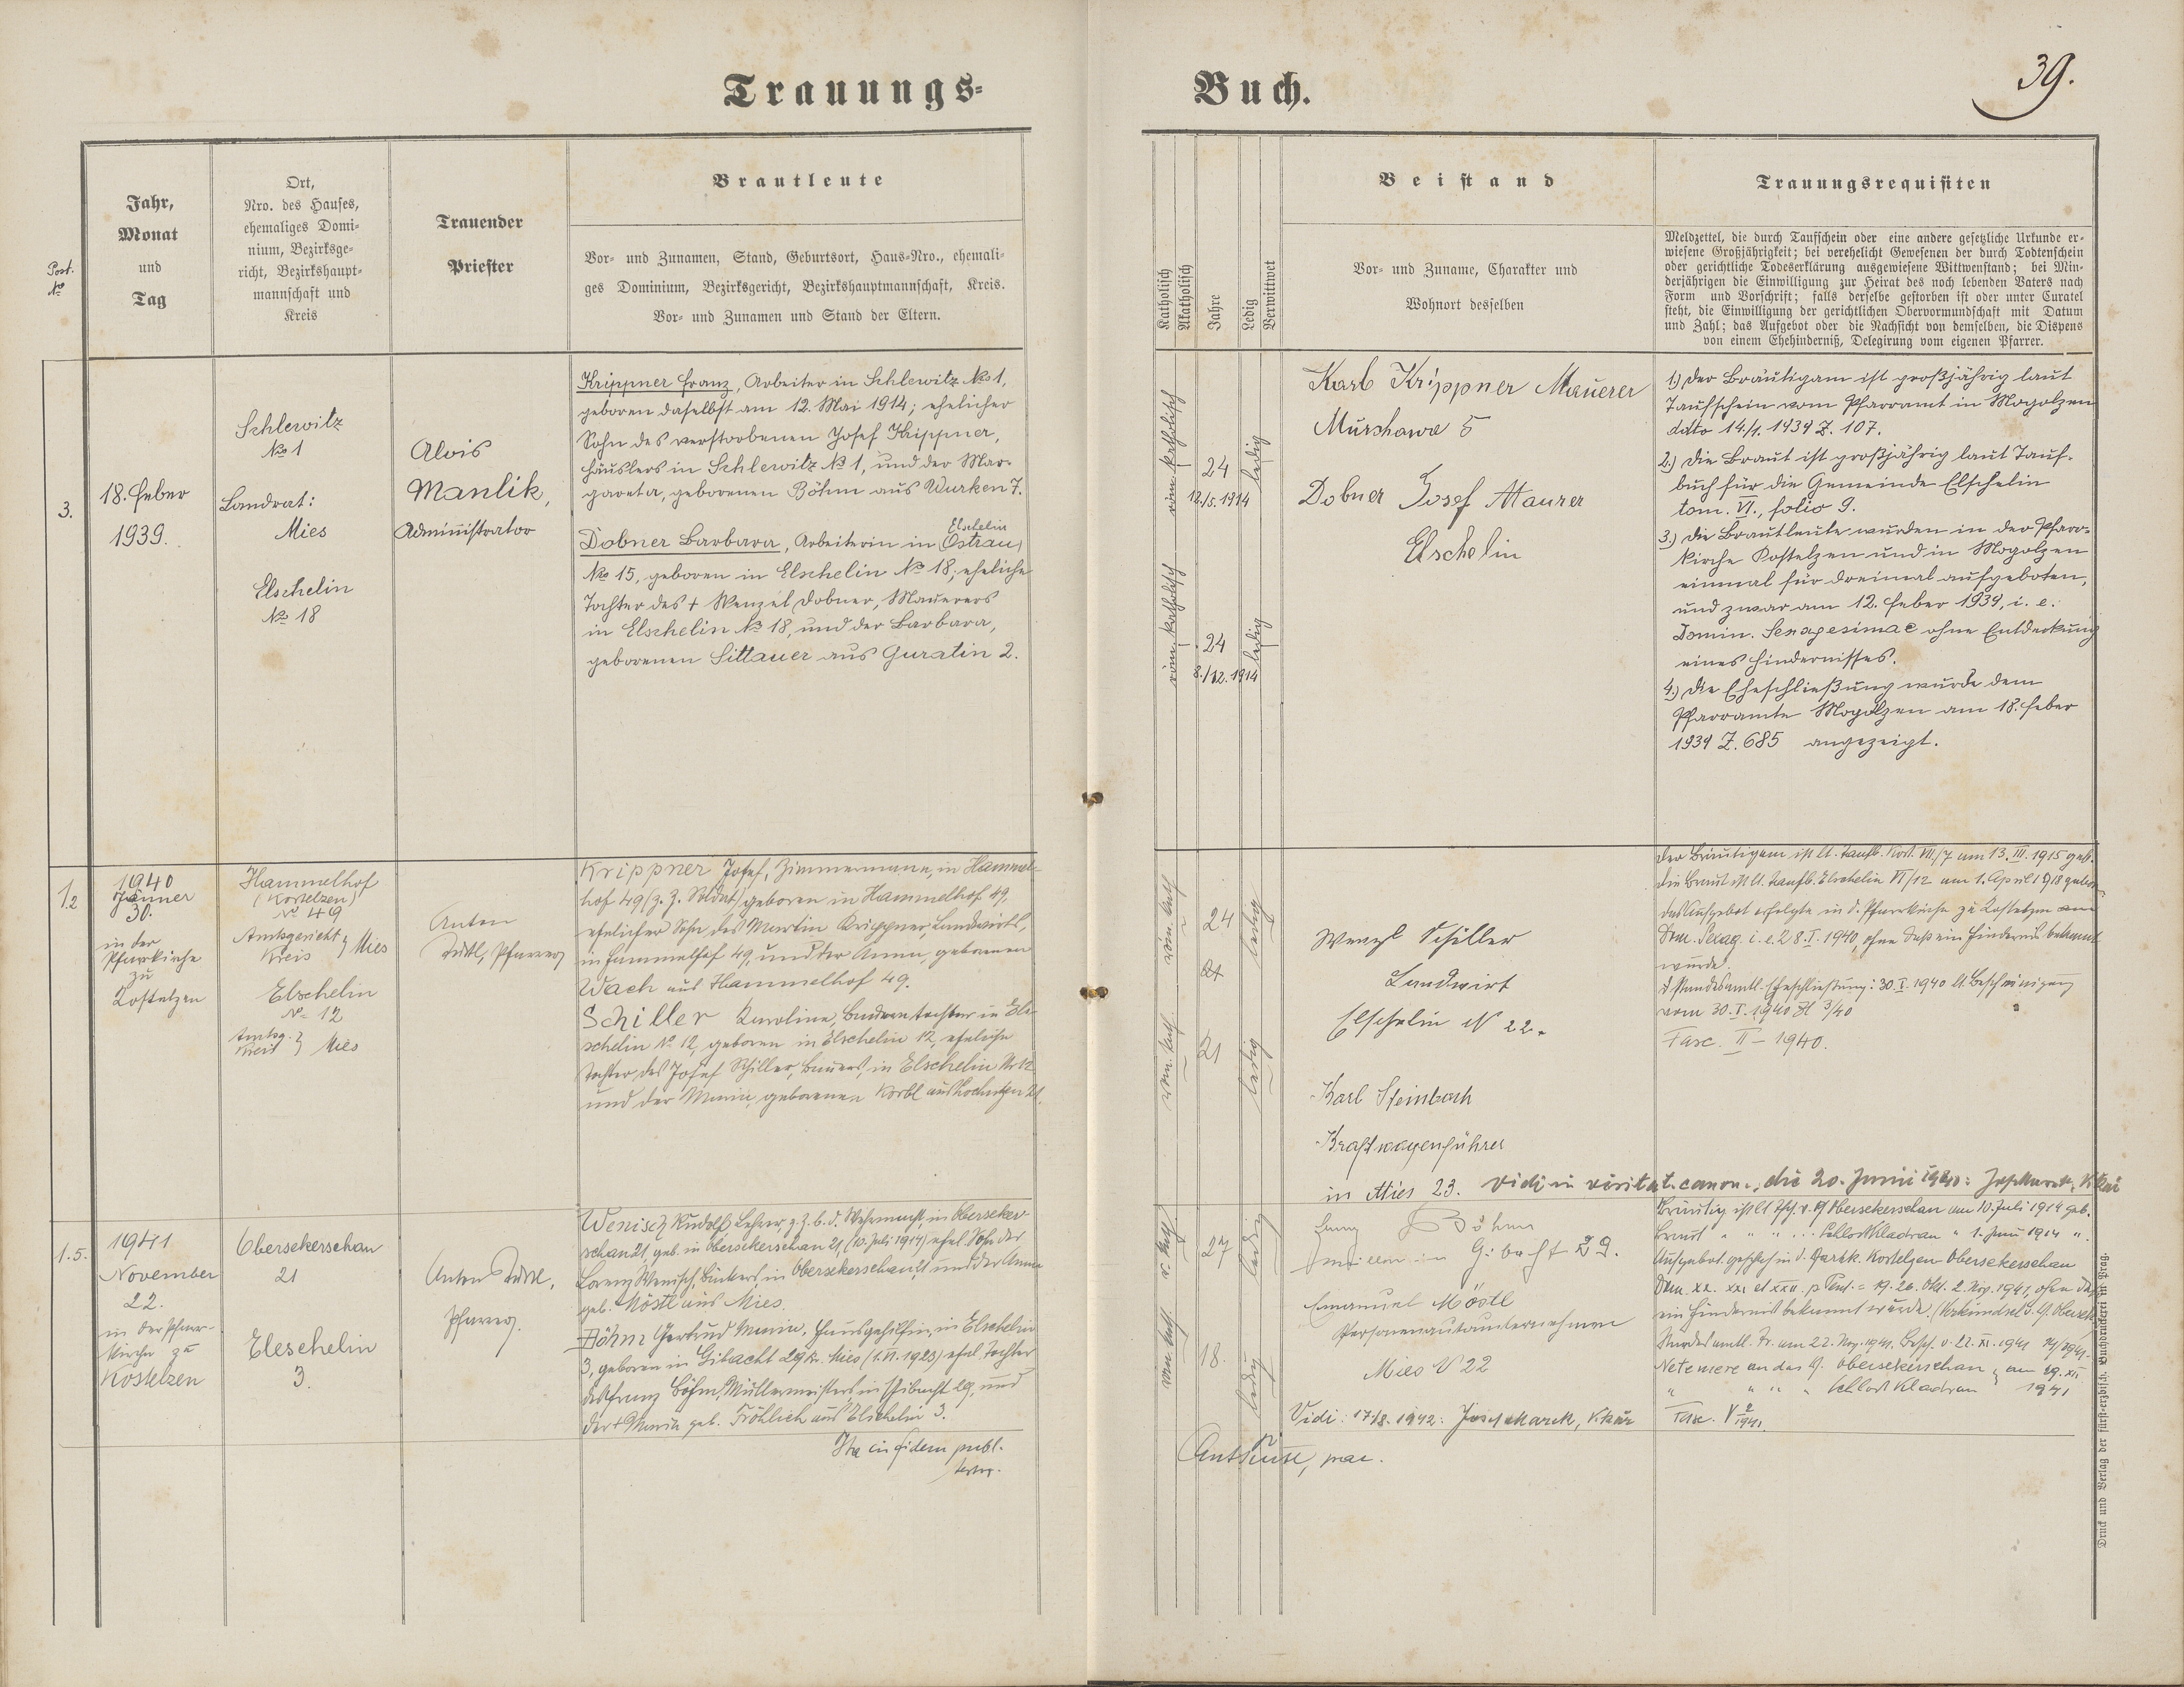 Trauungs-
Buch.
39.
Post. No
Jahr,
Monat
und
Tag
Ort,
Nro. des Hauses,
ehemaliges Domi-
nium, Bezirksge-
richt, Bezirkshaupt-
mannschaft und
Kreis
Trauender
Priester
Brautleute
Vor- und Zunamen, Stand, Geburtsort, Haus-Nro., ehemali-
ges Dominium, Bezirksgericht, Bezirkshauptmannschaft, Kreis.
Vor- und Zunamen und Stand der Eltern.
Katholisch
Akatholisch
Jahre
Ledig
Verwitwet
Beistand
Vor- und Zuname, Charakter und
Wohnort desselben
Trauungsrequisiten
Meldzettel, die durch Taufschein oder eine andere gesetzliche Urkunde er-
wiesene Großjährigkeit; bei verehelicht Gewesenen der durch Todtenschein
oder gerichtliche Todeserklärung ausgewiesene Wittwenstand; bei Min-
derjährigen die Einwilligung zur Heirat des noch lebenden Vaters nach
Form und Vorschrift; falls derselbe gestorben ist oder unter Curatel
steht, die Einwilligung der gerichtlichen Obervormundschaft mit Datum
und Zahl; das Aufgebot oder die Nachsicht von demselben, die Dispens
von einem Ehehinderniß, Delegirung vom eigenen Pfarrer.
3.
18. Feber
1939.
Schlewitz
No 1
Landrat:
Mies
Elschelin
No 18
Alois
Manlik,
Administrator
Krippner Franz, Arbeiter in Schlewitz No 1,
geboren daselbst am 12. Mai 1914; ehelicher
Sohn des verstorbenen Josef Krippner,
Häuslers in Schlewitz No 1, und der Mar-
gareta, geborenen Böhm aus Wurken 7.
Elschelin
Dobner Barbara, Arbeiterin in (Ostrau)
No 15, geboren in Elschelin No 18; eheliche
Tochter des + Wenzel Dobner, Maurers
in Elschelin No 18, und der Barbara,
geborenen Sittauer aus Guratin 2.
röm. katholisch
24
12./5.1914
ledig
röm. katholisch
24
8./12.1914
ledig
Karl Krippner Mauerer
Murchowa 5
Dobner Josef Maurer
Elschelin
1.) Der Bräutigam ist großjährig laut
Taufschein vom Pfarramt in Mogolzen
ddto 14./1. 1939 Z. 107.
2.) Die Braut ist großjährig laut Tauf-
buch für die Gemeinde Elschelin
tom. VI., folio 9.
3.) Die Brautleute wurden in der Pfarr-
kirche Kostelzen und in Mogolzen
einmal für dreimal aufgeboten,
und zwar am 12. Feber 1939, i. e.
Domin. Sexagesimae ohne Entdeckung
eines Hindernisses.
4.) Die Eheschließung wurde dem
Pfarramte Mogolzen am 18. Feber
1939 Z. 685 angezeigt.
1940
Jänner
30.
in der
Pfarrkirche
zu
Kostelzen
Hammelhof
(Kostelzen)
No 49
Amtsgericht
Kreis } Mies
Elschelin
No 12
Amtsg.
Kreis } Mies
Anton
Pfarrer
Krippner Josef, Zimmermann, in Hammel-
hof 49 (z. Z. Soldat) geboren in Hammelhof 49,
ehelicher Sohn des Martin Krippner, Landwirts,
in Hammelhof 49, und der Anna, geborenen
Wach aus Hammelhof 49.
Schiller Karoline, Bauerntochter in El-
schelin No 12, geboren in Elschelin 12, eheliche
Tochter des Josef Schiller, Bauers, in Elschelin Nr 12
und der Maria, geborenen Korbl aus
röm. kath.
24
ledig
röm. kath.
21
ledig
Wenzl Schiller
Landwirt
Elschelin N 22.
Karl Steinbach
Kraftwagenführer
in Mies 23.
Vidi in visitat. canon., die 20. Junii 1940:
Der Bräutigam ist lt. Taufb. Kost. VII/7 am 13. III. 1915 geb.
Die Braut ist lt. Taufb. Elschelin VI/12 am 1. April 1918 geboren
Das Aufgebot erfolgte in d. Pfarrkirche zu Kostelzen am
Dom. Sexag. i. e. 28. I. 1940, ohne daß ein Hindernis bekannt
wurde.
Standesamtl. Eheschließung: 30. I. 1940 lt. Bescheinigung
vom 30. I. 1940 Zl 3/40
Fasc. II - 1940.
1.5.
1941
November
22.
in der Pfarr-
kirche zu
Kostelzen
Obersekerschan
21
Eleschelin
3.
Anton
Pfarrer.
Wenisch Rudolf, Lehrer, z. Z. b. d. Wehrmacht, in Oberseker-
schan 21, geb. in Obersekerschan 21, (10. Juli 1914) ehel. Sohn der
Lorenz Wenisch, Bäckers, in Obersekerschan 21 und der Anna
geb. Möstl aus Mies.
Böhm Gertrud Maria, Hausgehilfin, in Elschelin
3, geboren in Gibacht 29 Kr. Mies (1. VI. 1923) ehel. Tochter
des Franz Böhm, Müllermeisters in Gibacht 29, und
der + Maria geb. Fröhlich aus Elschelin 3.
Ita in fidem publ.
27
ledig
röm. kath.
18.
ledig
Franz Böhm
in Gibacht 29.
Emanuel Möstl
Personenautounternehmer
Mies N 22
Vidi: 17/8. 1942: Josef Marek, Vikär
Bräutig. ist lt Tfsch. v. Obersekerschan am 10. Juli 1914 geb.
Braut " " " Schloss Kladrau " 1. Juni 1914 ".
Dom. XX. XXI et XXII. p Pent. = 19. 26. Okt. 2. Nov. 1941, ohne daß
ein Hindernis bekannt wurde.
Standesamtl. Tr. am 22. Nov. 1941. Besch. v. 22. XI. 1941 14/1941.
Ne temere an das Obersekerschan am 29. XII
" " " " Schloss Kladrau 1941
Fasc. V 2/1941.
Druck und Verlag der fürst-erzbisch. Buchdruckerei in Prag.